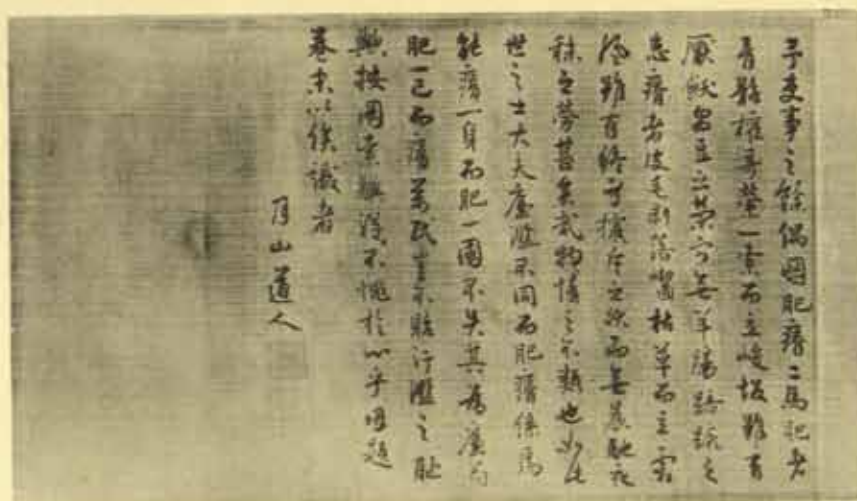 予吏事之餘偶圖肥瘠二馬肥者
骨骼權奇縈一索而立峻坂雖有
厭飫芻豆之榮寧無羊腸踣蹶之
患瘠者皮毛剝落齧枯草而立霜
風雖有終身擯斥之狀而無晨馳夜
秣之勞甚矣哉物情之不類也如此
世之士大夫廉濫不同而肥瘠係焉
能瘠一身而肥一國不失其為廉苟
肥一己而瘠萬民豈不貽汙濫之恥
歟按圖索驥得不愧於心乎因題
卷末以俟識者
月山道人